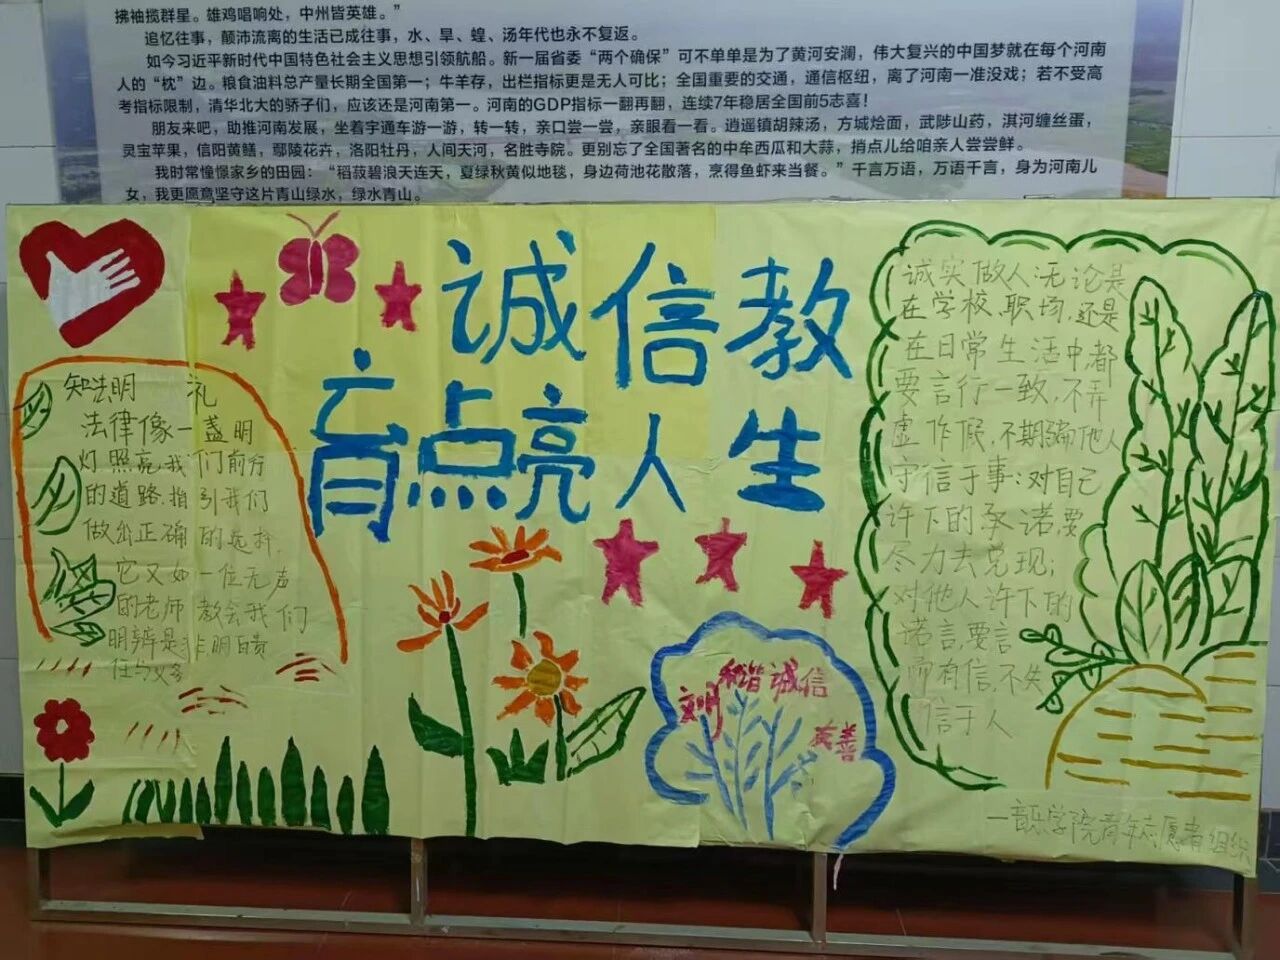 拂袖揽群星。雄鸡唱响处，中州皆英雄。”
追忆往事，颠沛流离的生活已成往事，水、旱、蝗、汤年代也永不复返。
如今习近平新时代中国特色社会主义思想引领航船。新一届省委“两个确保”可不单单是为了黄河安澜，伟大复兴的中国梦就在每个河南
人的“枕”边。粮食油料总产量长期全国第一；牛羊存，出栏指标更是无人可比；全国重要的交通，通信枢纽，离了河南一准没戏；若不受高
考指标限制，清华北大的骄子们，应该还是河南第一。河南的GDP指标一翻再翻，连续7年稳居全国前5志喜！
朋友来吧，助推河南发展，坐着宇通车游一游，转一转，亲口尝一尝，亲眼看一看。逍遥镇胡辣汤，方城烩面，武陟山药，淇河缠丝蛋，
灵宝苹果，信阳黄鳝，鄢陵花卉，洛阳牡丹，人间天河，名胜寺院。更别忘了全国著名的中牟西瓜和大蒜，捎点儿给咱亲人尝尝鲜。
我时常憧憬家乡的田园：“稻菽碧浪天连天，夏绿秋黄似地毯，身边荷池花散落，烹得鱼虾来当餐。”千言万语，万语千言，身为河南儿
女，我更愿意坚守这片青山绿水，绿水青山。
诚信教
育点亮人生
知法明 礼
法律像一盏明
灯照亮我们前行
的道路，指引我们
做出正确的选择，
它又如一位无声
的老师 教会我们
明辨是非明白责
任与义务
文明
和谐 诚信
友善
诚实做人：无论是
在学校、职场，还是
在日常生活中，都
要言行一致，不弄
虚作假，不期骗他人
守信于事：对自己
许下的承诺，要
尽力去兑现；
对他人许下的
诺言，要言
而有信，不失
信于人
—音乐学院青年志愿者组织